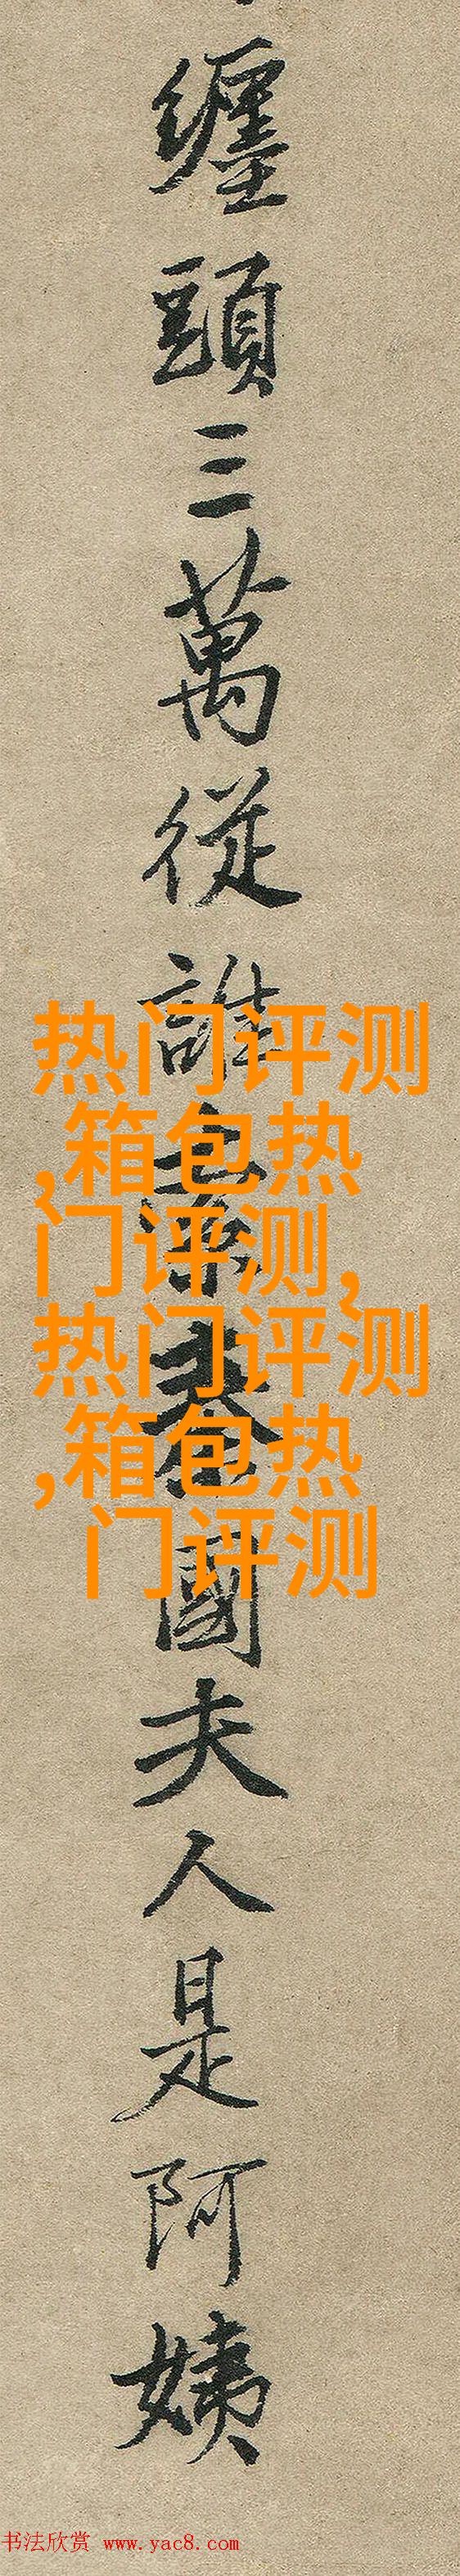 纏頭三萬從誰索秦國夫人是阿姨
热门评测
,箱包热
门评测,
热门评测
,箱包热
门评测
书法欣赏 www.yac8.com